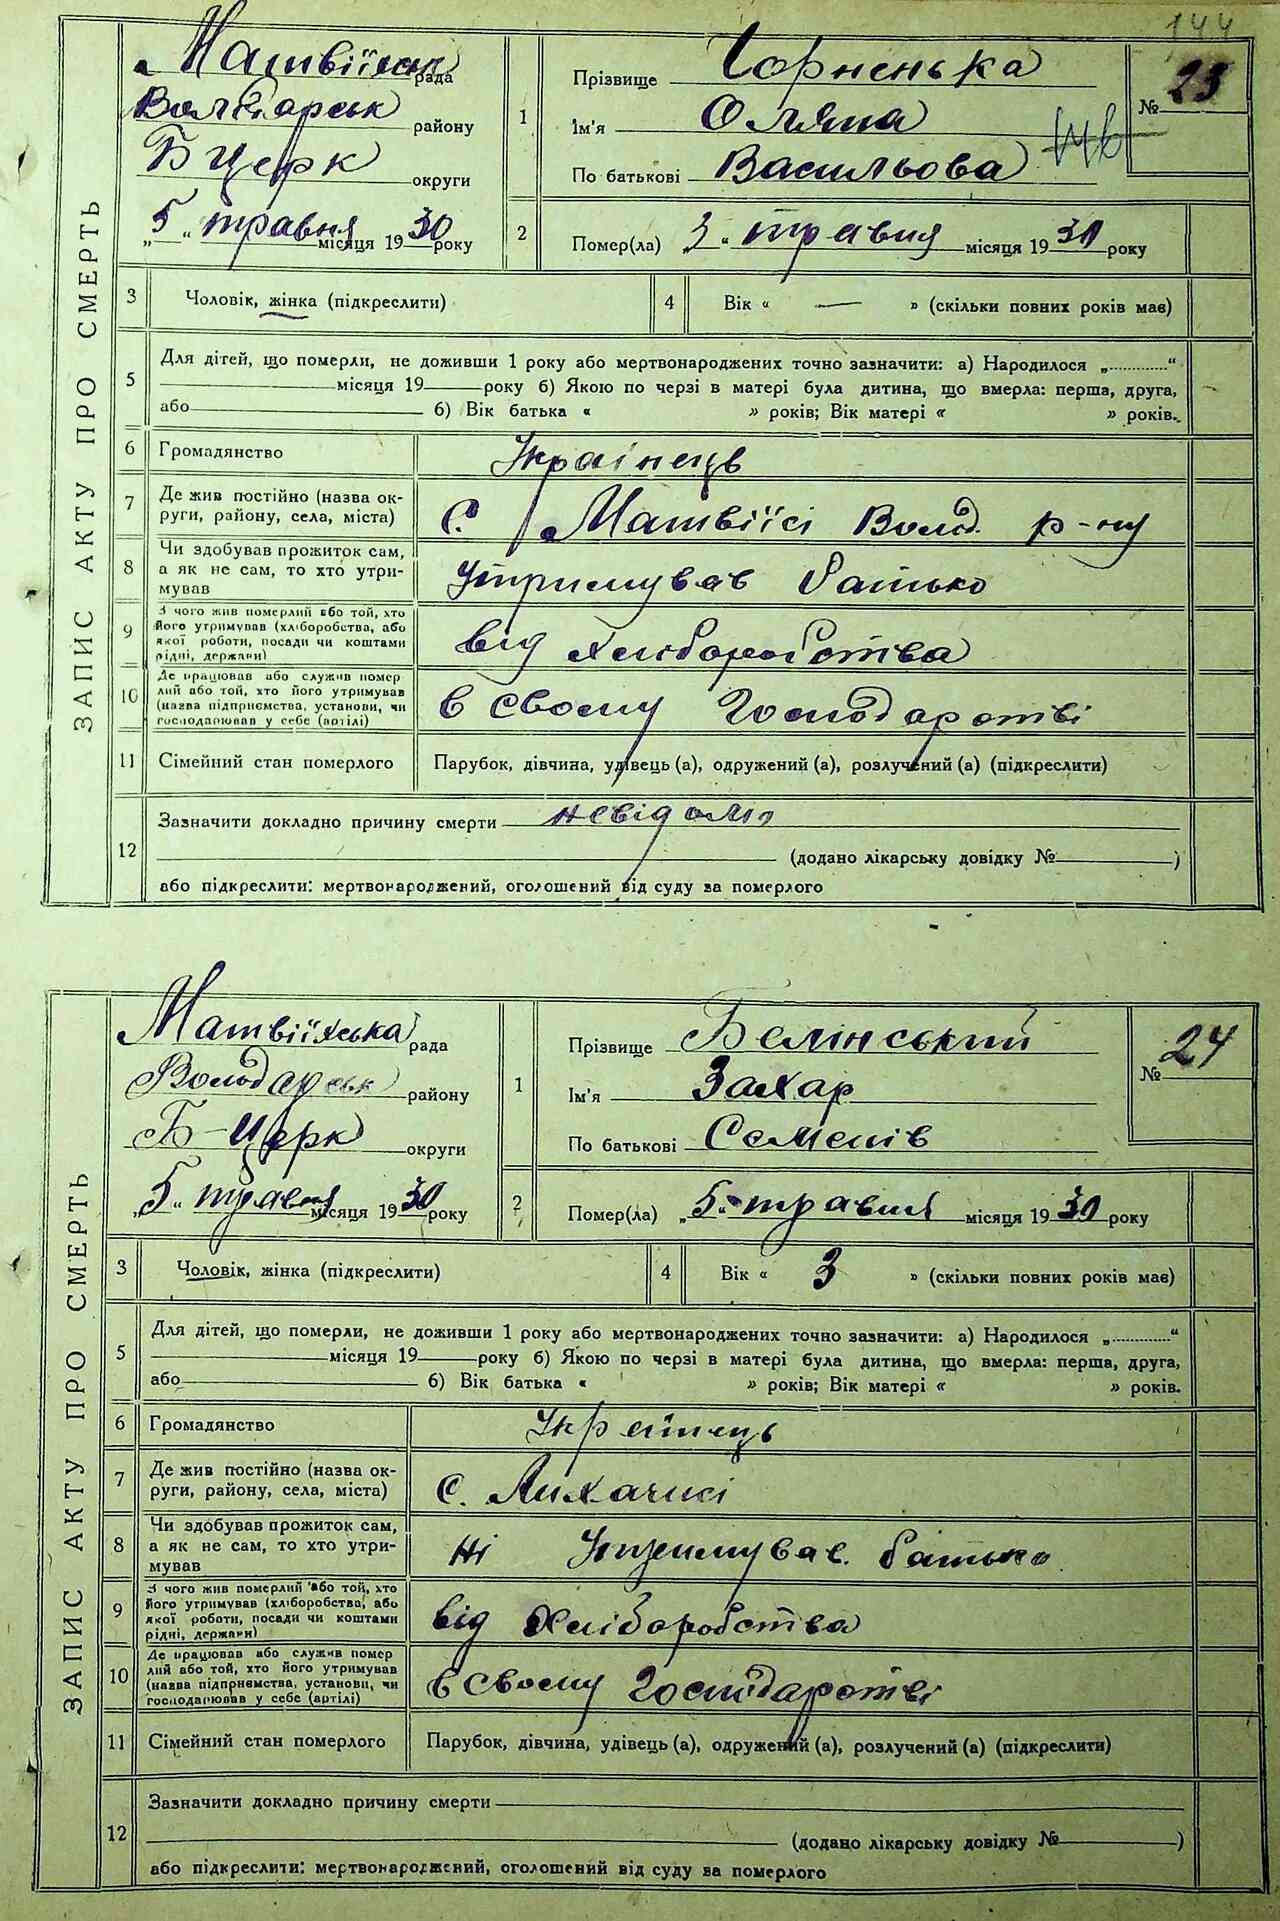 144
ЗАПИС АКТУ ПРО СМЕРТЬ
Матвіїхськ рада
Володарськ району
Б Церк округи
„5“ травня місяця 1930 року
1
Прізвище Чорненька
Ім'я Оляна
По батькові Васильова
№ 23
2
Помер(ла) 3 „ травня місяця 1930 року
3
Чоловік, жінка (підкреслити)
4
Вік « — » (скільки повних років має)
5
Для дітей, що померли, не доживши 1 року або мертвонароджених точно зазначити: а) Народилося „.............“
місяця 19 року б) Якою по черзі в матері була дитина, що вмерла: перша, друга,
або б) Вік батька « » років; Вік матері « » років.
6
Громадянство Українець
7
Де жив постійно (назва ок-
руги, району, села, міста) С. Матвіїсі Волод. р-ну
8
Чи здобував прожиток сам,
а як не сам, то хто утри-
мував Утримував батько
9
З чого жив померлий або той, хто
його утримував (хліборобства, або
якої роботи, посади чи коштами
рідні, держави) від хліборобства
10
Де працював або служив помер
лий або той, хто його утримував
(назва підприємства, установи, чи
господарював у себе (артілі) в своєму господарстві
11
Сімейний стан померлого Парубок, дівчина, удівець (а), одружений (а), розлучений (а) (підкреслити)
12
Зазначити докладно причину смерти невідомо
(додано лікарську довідку № )
або підкреслити: мертвонароджений, оголошений від суду за померлого
ЗАПИС АКТУ ПРО СМЕРТЬ
Матвіїхська рада
Володарськ району
Б-Церк округи
„5“ травня місяця 1930 року
1
Прізвище Белінський
Ім'я Захар
По батькові Семенів
№ 24
2
Помер(ла) „5“ травня місяця 1930 року
3
Чоловік, жінка (підкреслити)
4
Вік « 3 » (скільки повних років має)
5
Для дітей, що померли, не доживши 1 року або мертвонароджених точно зазначити: а) Народилося „.............“
місяця 19 року б) Якою по черзі в матері була дитина, що вмерла: перша, друга,
або б) Вік батька « » років; Вік матері « » років.
6
Громадянство Українець
7
Де жив постійно (назва ок-
руги, району, села, міста) С. Лихачисі
8
Чи здобував прожиток сам,
а як не сам, то хто утри-
мував Ні Утримував батько
9
З чого жив померлий або той, хто
його утримував (хліборобства, або
якої роботи, посади чи коштами
рідні, держави) від Хліборобства
10
Де працював або служив помер
лий або той, хто його утримував
(назва підприємства, установи, чи
господарював у себе (артілі) в своєму господарстві
11
Сімейний стан померлого Парубок, дівчина, удівець (а), одружений (а), розлучений (а) (підкреслити)
12
Зазначити докладно причину смерти
(додано лікарську довідку № )
або підкреслити: мертвонароджений, оголошений від суду за померлого